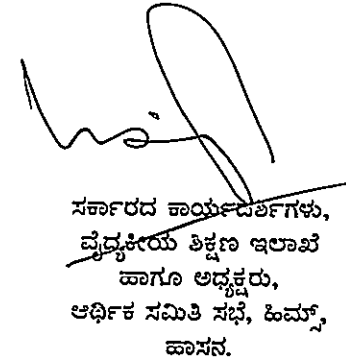 ಸರ್ಕಾರದ ಕಾರ್ಯದರ್ಶಿಗಳು,
ವೈದ್ಯಕೀಯ ಶಿಕ್ಷಣ ಇಲಾಖೆ
ಹಾಗೂ ಅಧ್ಯಕ್ಷರು,
ಆರ್ಥಿಕ ಸಮಿತಿ ಸಭೆ, ಹಿಮ್ಸ್,
ಹಾಸನ.